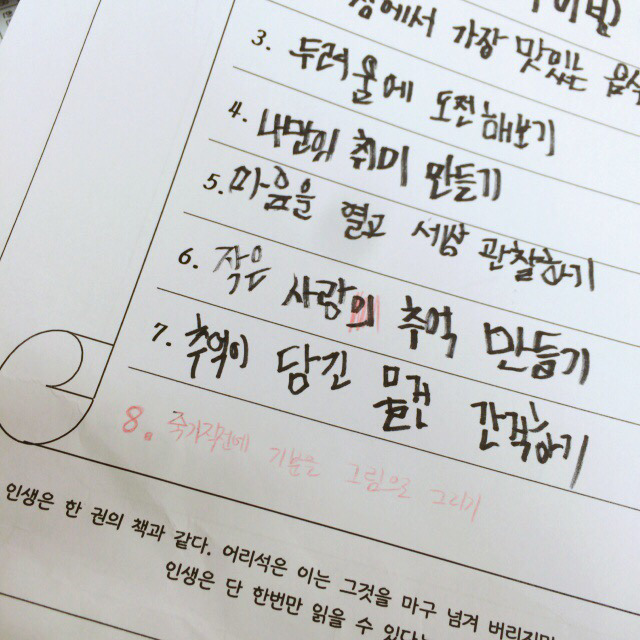 에서 가장 맛있는 음식
3. 두려움에 도전해보기
4. 나만의 취미 만들기
5. 마음을 열고 세상 관찰하기
6. 작은 사랑의 추억 만들기
7. 추억이 담긴 물건 간직하기
8. 기분을 그림으로 그리기
인생은 한 권의 책과 같다. 어리석은 이는 그것을 마구 넘겨 버리지만
인생은 단 한번만 읽을 수 있다